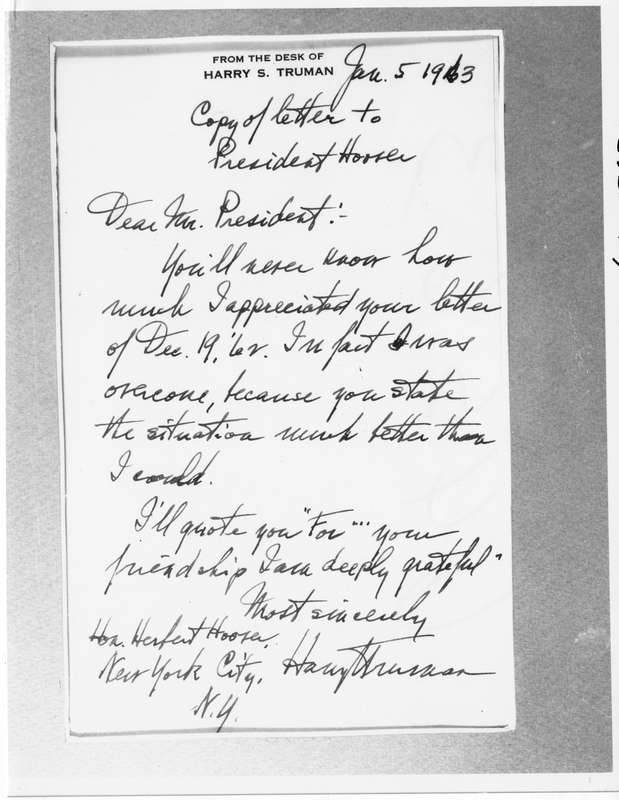 FROM THE DESK OF
HARRY S. TRUMAN
Jan. 5 1963
Copy of letter to
President Hoover
Dear Mr. President:-
You'll never know how
much I appreciated your letter
of Dec. 19, '62. In fact I was
overcome, because you state
the situation much better than
I could.
I'll quote you "For ''' your
friendship I am deeply grateful"
Most sincerely
Hon. Herbert Hoover,
New York City, Harry Truman
N.Y.